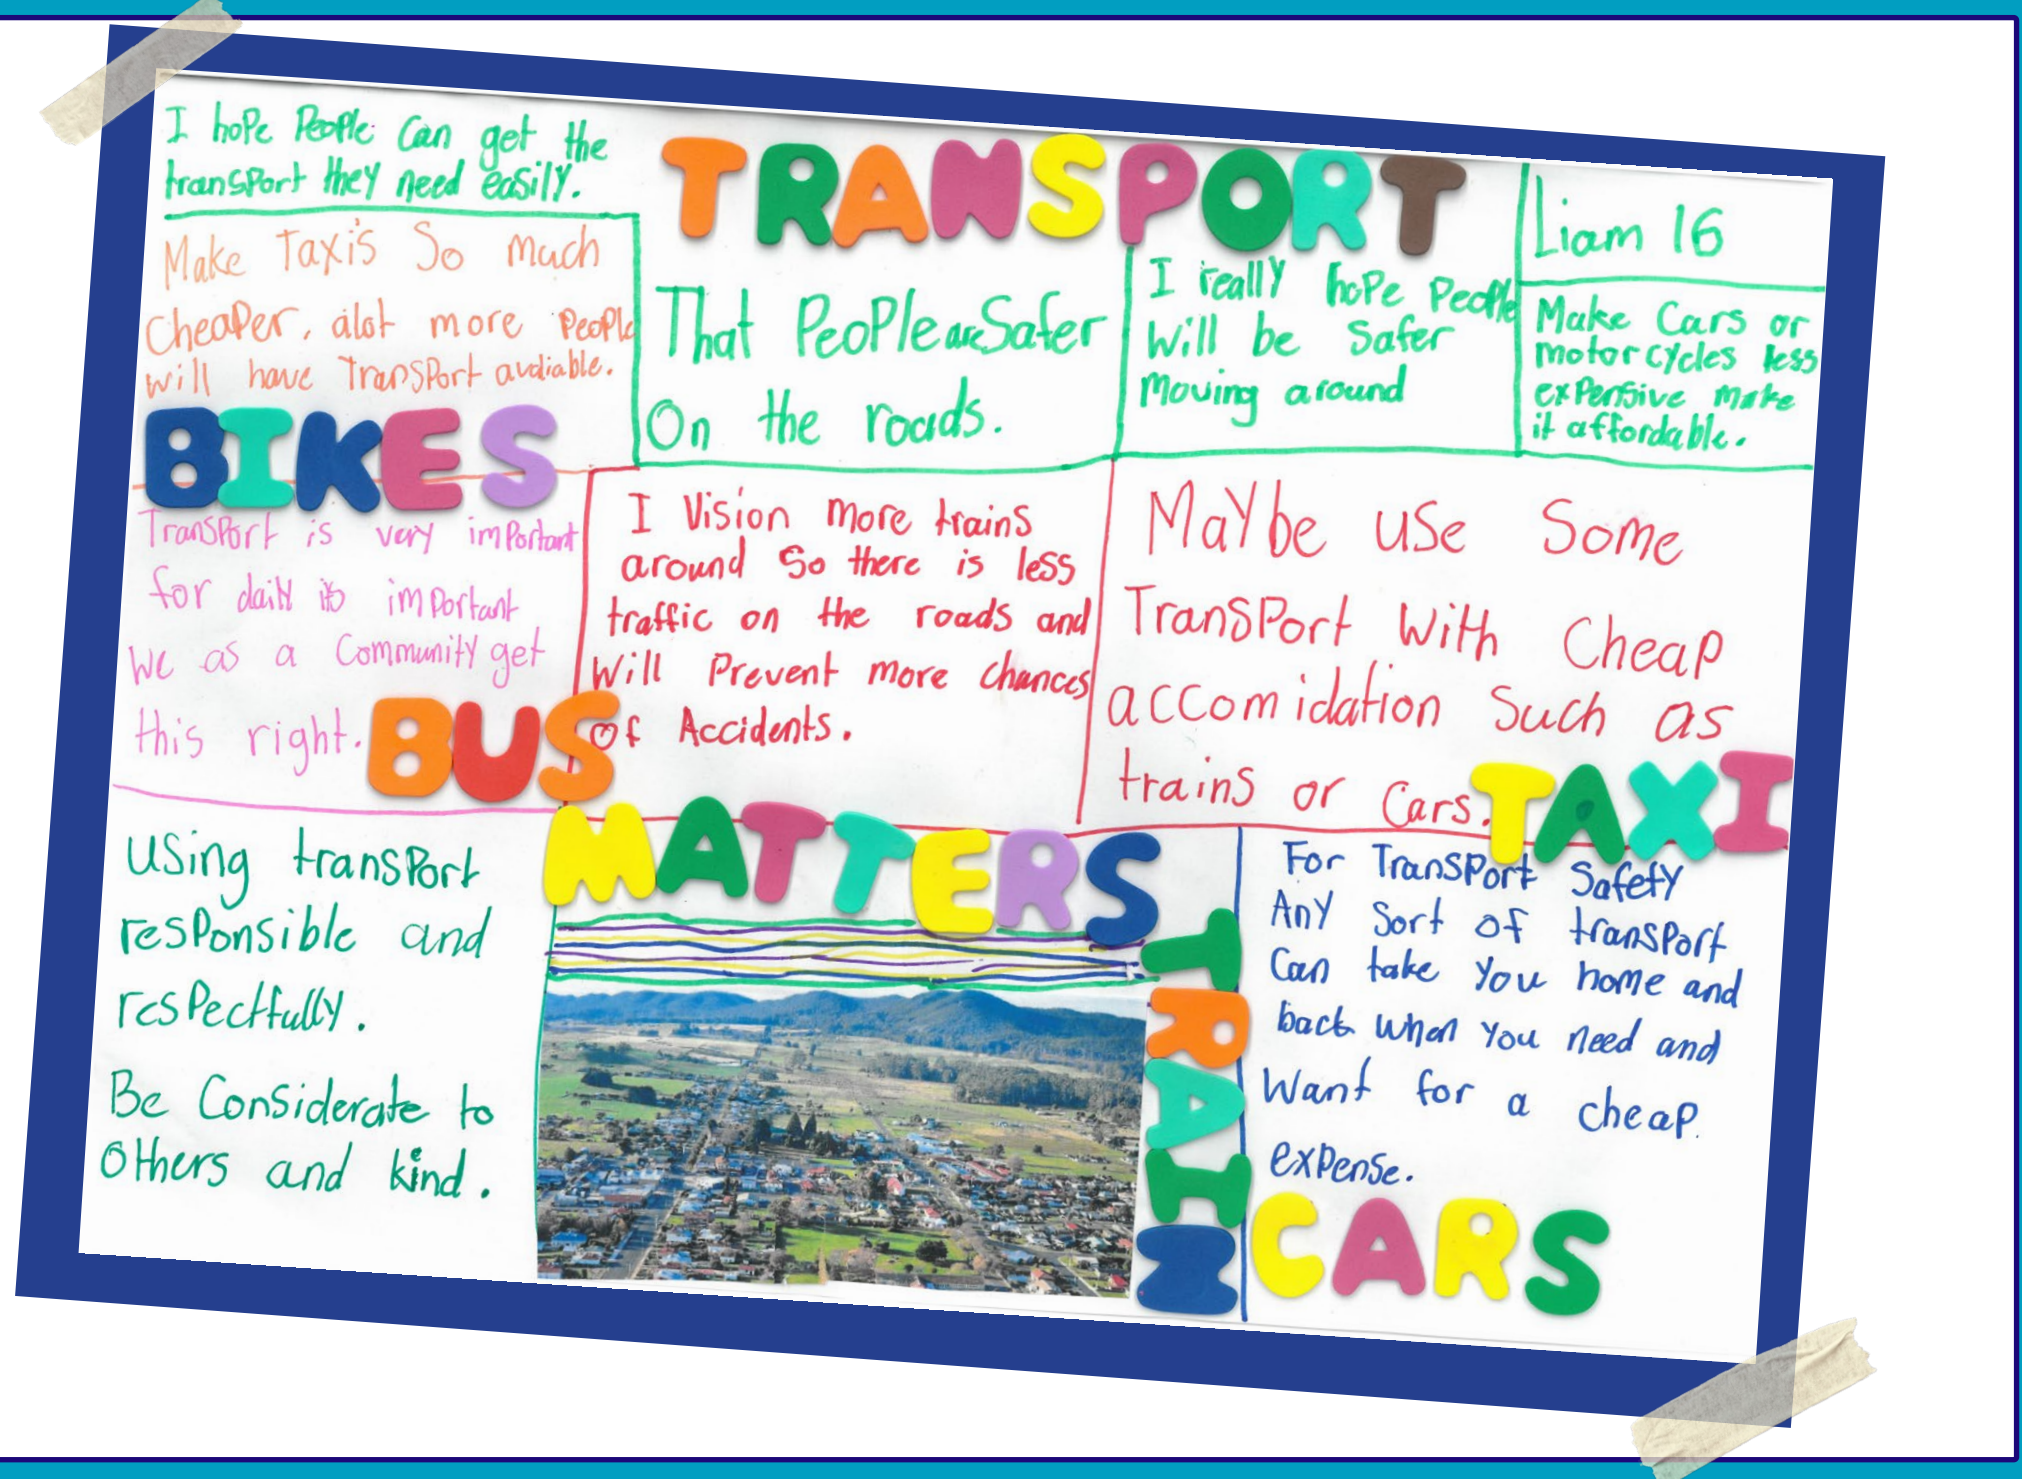 I hope People Can get the
transport they need easily.
TRANSPORT
Liam 16
Make Taxi's So much
Cheaper, alot more People
will have Transport avaliable.
That People are Safer
On the roads.
I really hope People
Will be Safer
Moving around
Make Cars or
motorcycles less
expensive make
it affordable.
BIKES
Transport is very important
for daily its important
We as a Community get
this right.
BUS
I Vision more trains
around So there is less
traffic on the roads and
Will Prevent more chances
of Accidents.
Maybe use Some
Transport With Cheap
accomidation Such as
trains or Cars.
TAXI
MATTERS
Using transport
responsible and
respectfully.
Be Considerate to
Others and kind.
TRAIN
For Transport Safety
Any Sort of transport
Can take you home and
back when you need and
Want for a cheap
expense.
CARS